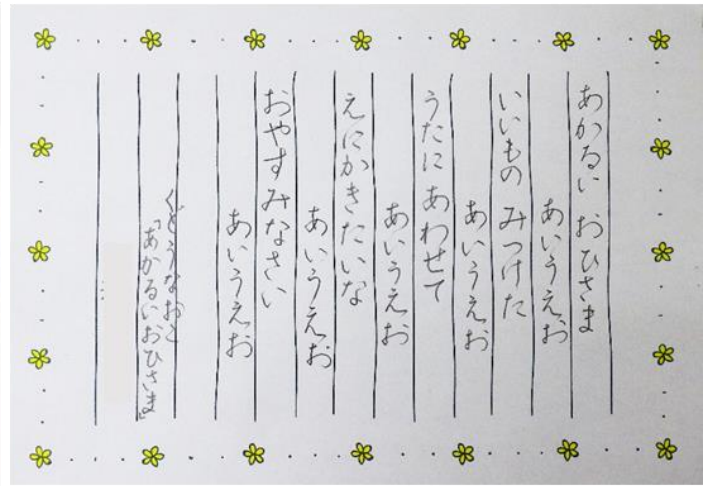 あかるい おひさま
あいうえお
いいもの みつけた
あいうえお
うたに あわせて
あいうえお
えにかきたいな
あいうえお
おやすみなさい
あいうえお
くどうなおこ
「あかるいおひさま」